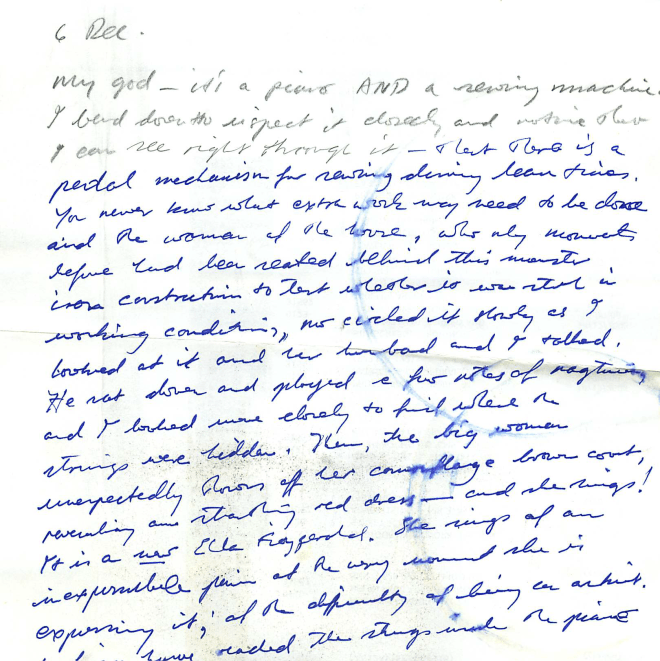 6 Dec.
My god – it's a piano AND a sewing machine.
I bend down to inspect it closely and notice that
I can see right through it – that there is a
pedal mechanism for sewing during lean times.
You never know what extra work may need to be done
and the woman of the house, who only moments
before had been seated behind this monster
iron construction to test whether it was still in
working condition, now circled it slowly as I
looked at it and her husband and I talked.
He sat down and played a few notes of ragtime
and I looked more closely to find where the
strings were hidden. Then, the big woman
unexpectedly throws off her camouflage brown coat,
revealing a stunning red dress – and she sings!
It is a new Ella Fitzgerald. She sings of an
inexpressible pain at the very moment she is
expressing it; of the difficulty of being an artist.
have reached the strings inside the piano